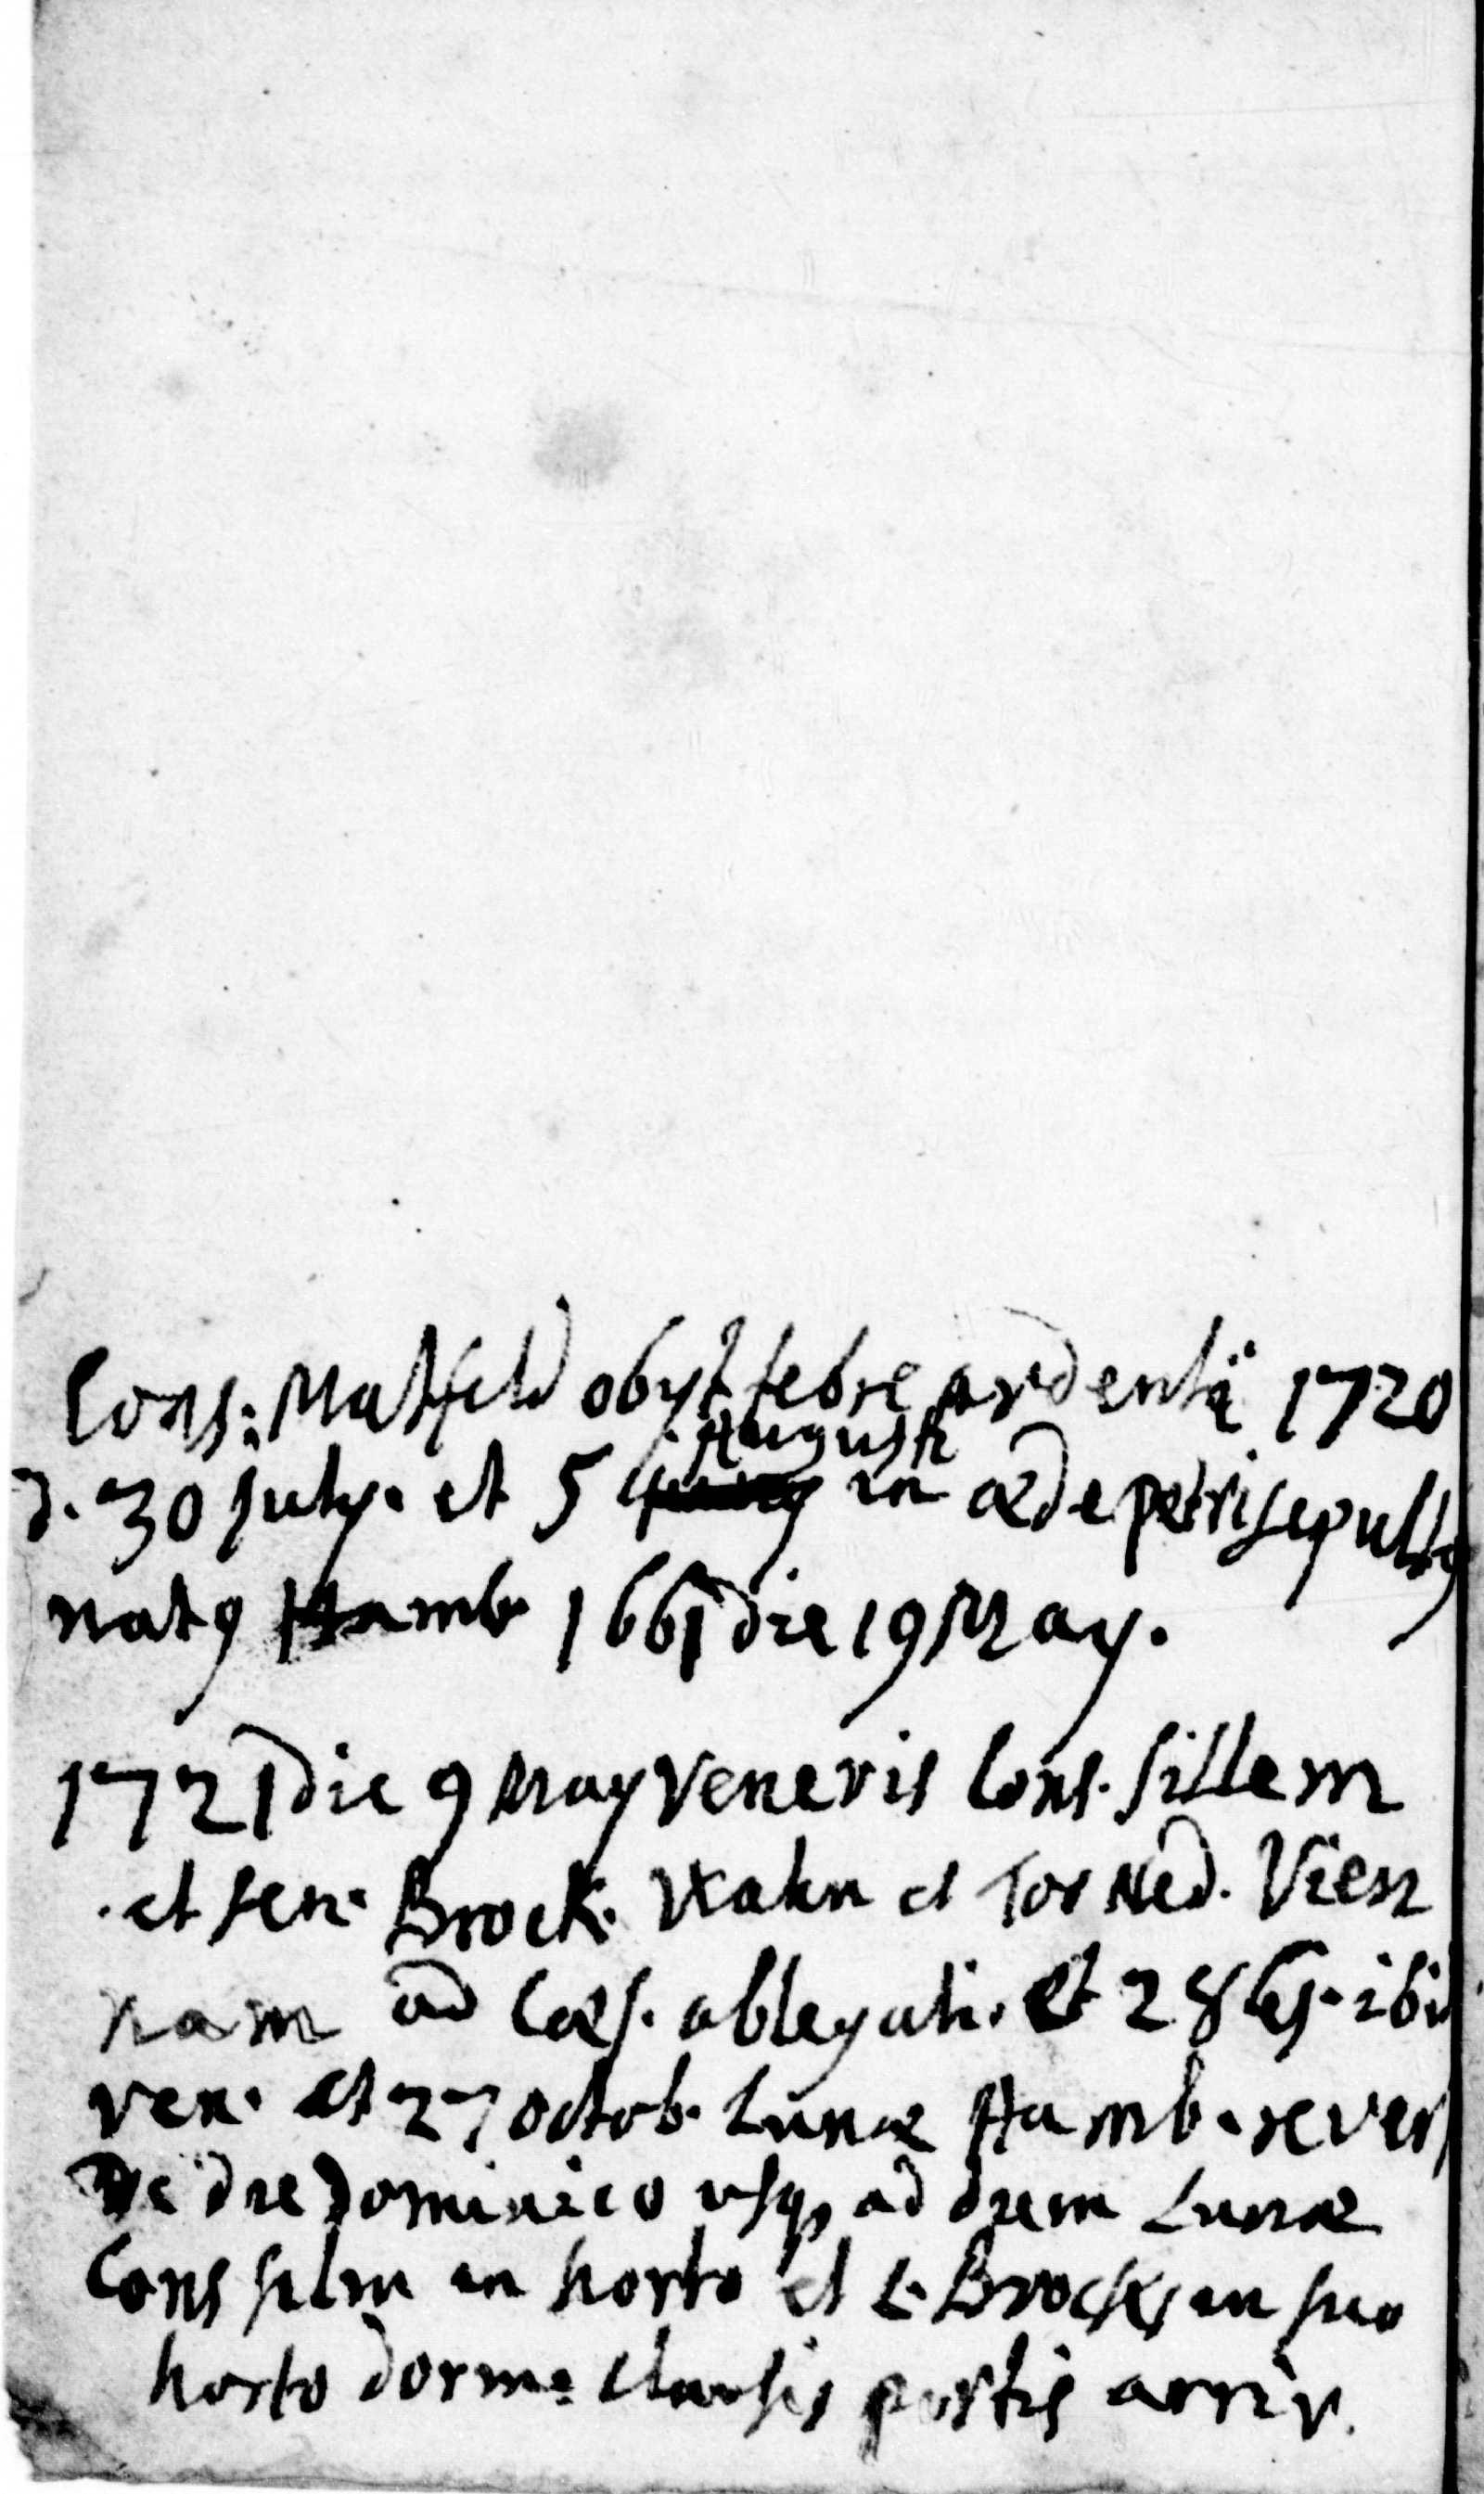 Cons: Matfeld obyt febre ardenti 1720
Augusti
d. 30 july. et 5 in æde petri sepultg
natg Hamb 1661 die 19 May.
1721 die 9 May Veneris Cons. Sillem
et sen. Brock. et Tor Ned. Vien
nam ad Cæs. ablegati. et 28 ej. ibi
ven. et 27 octob. Lunæ Hamb. revers
De die Dominico usq, ad diem Lunæ
Cons silm in horto et L. Brockes in suo
horto dorm: clausis portis arriv.